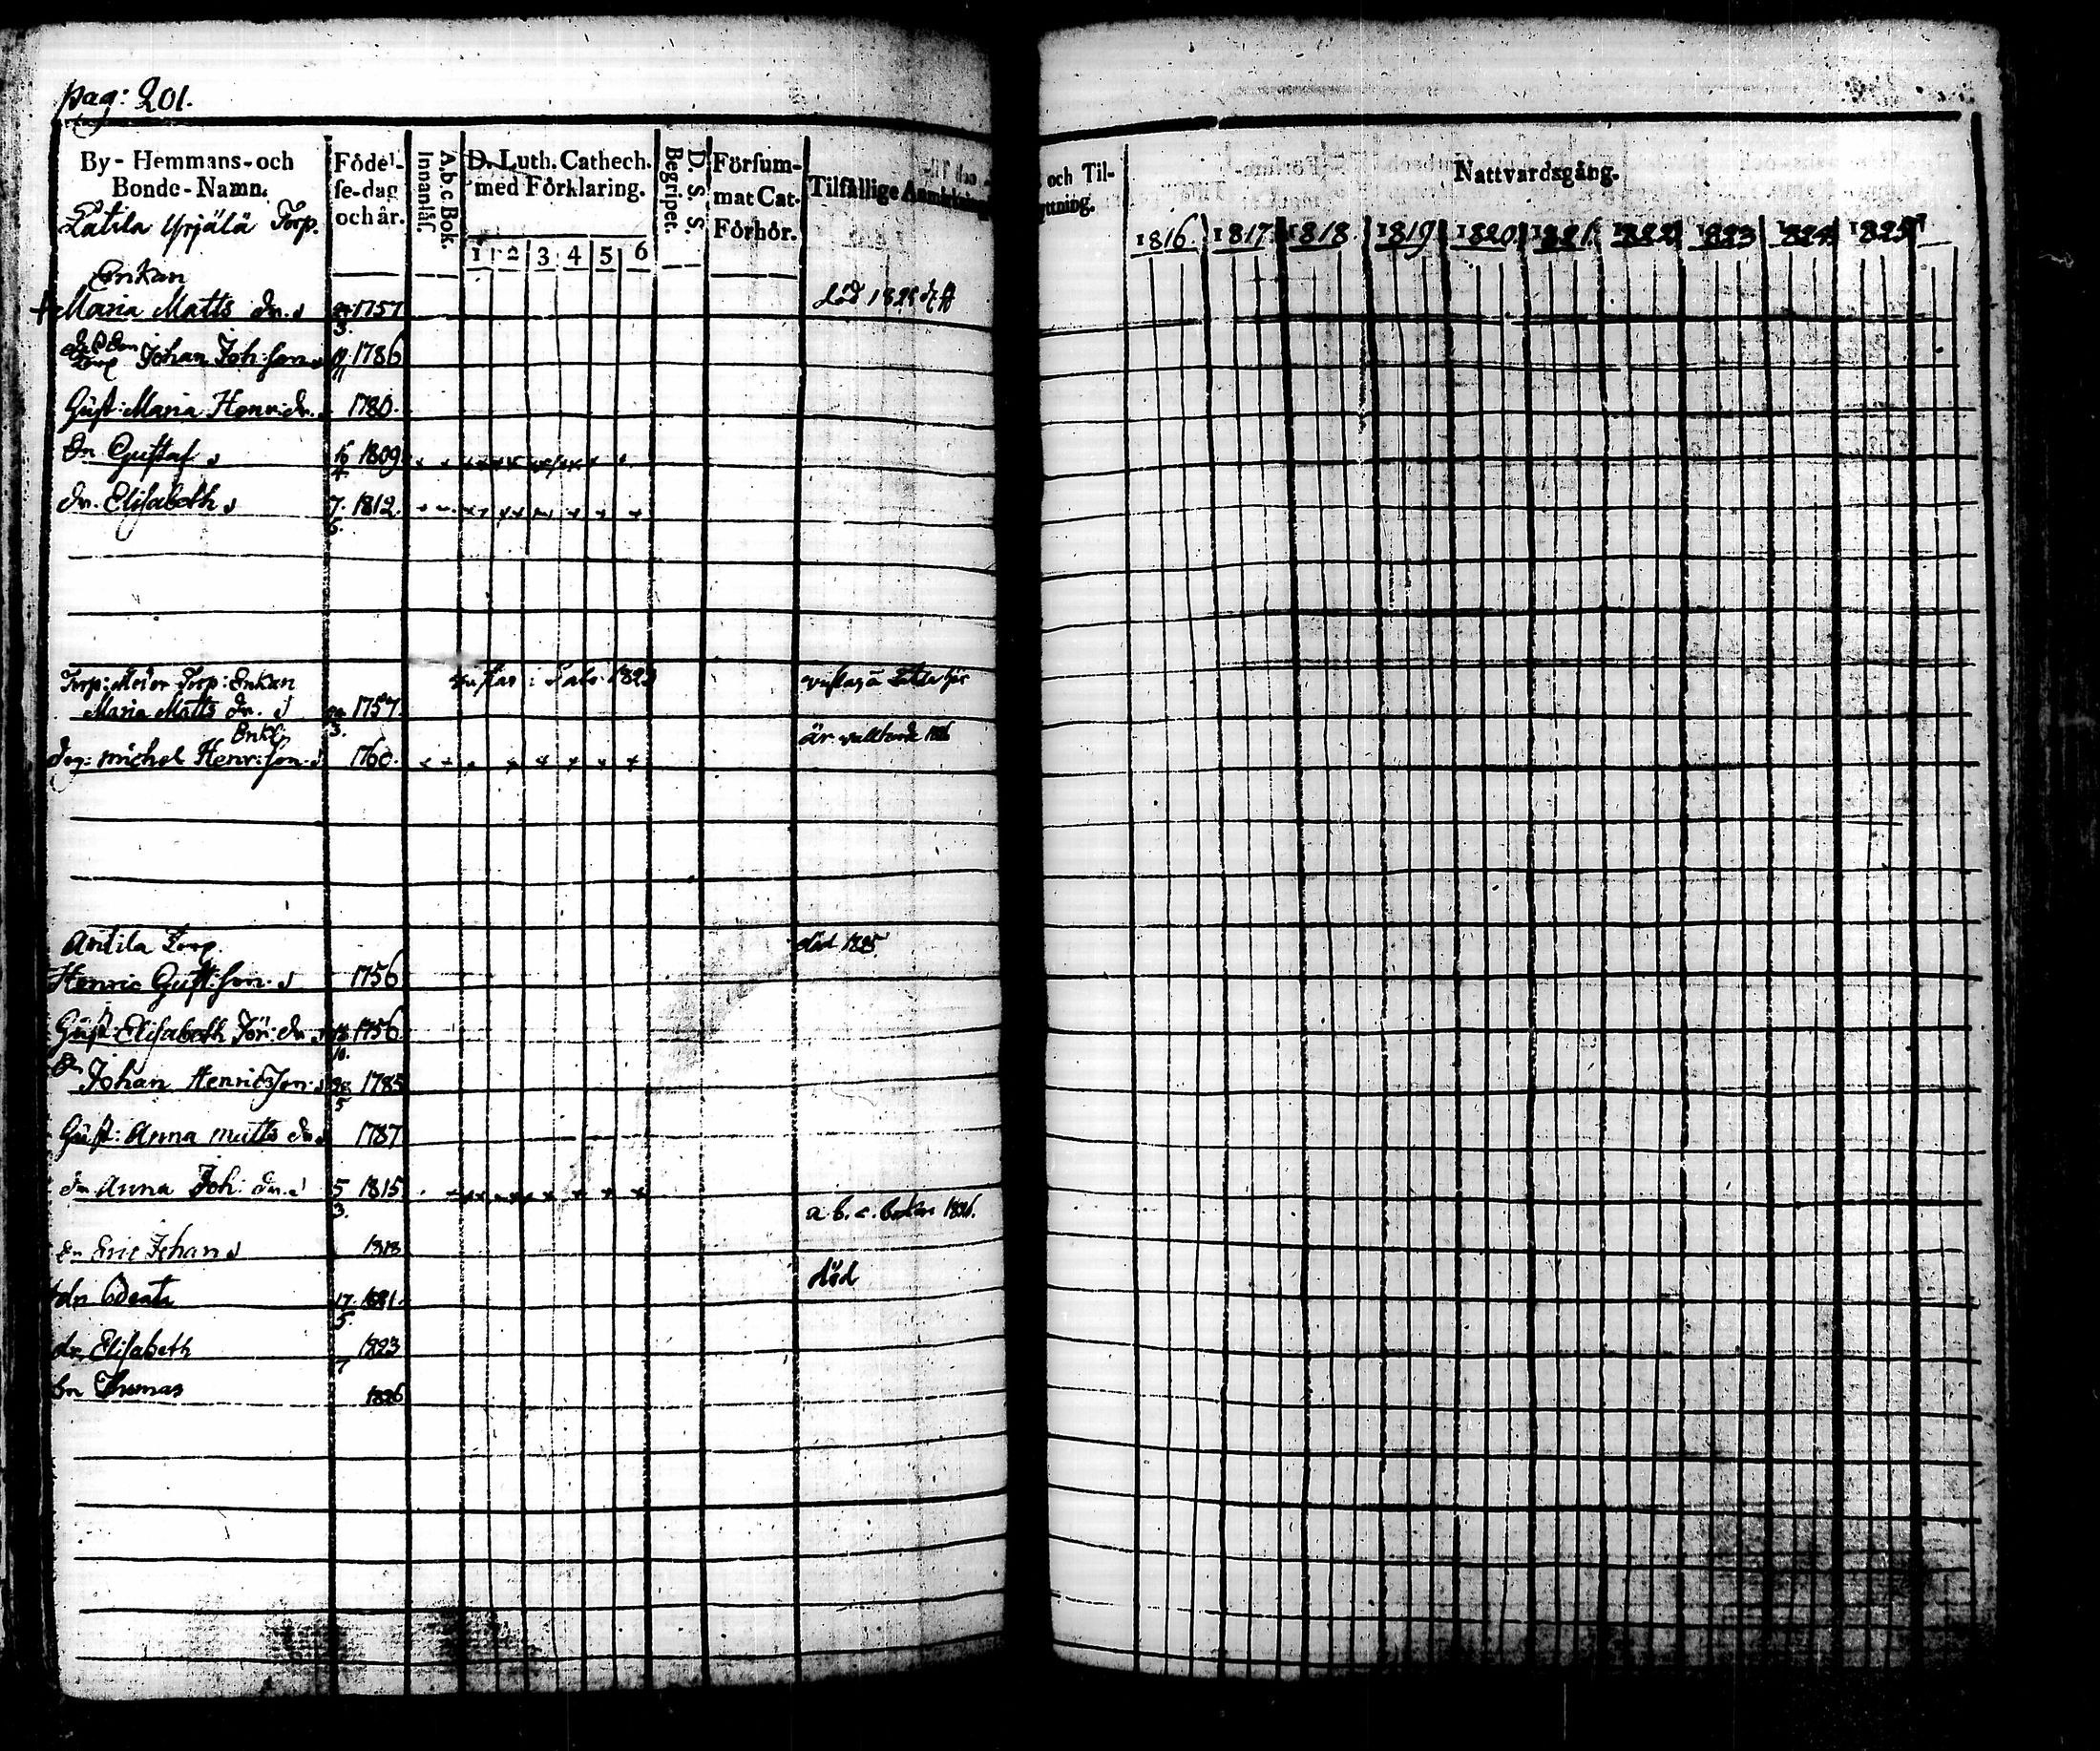 pag: 201.
By-Hemmans-och
Bonde-Namn.
Födel-
se-dag
och år.
A.b.c. Bok.
Innanläs.
D. Luth. Cathech.
med Förklaring.
1 2 3 4 5 6
D. S. S.
Begriper.
Försum-
mat Cat-
Förhör.
Tilfällige
och Til-
Nattvardsgång.
1816. 1817 1818. 1819 1820 1821 1822 1823 1824 1825
Latila Yrjälä Torp.
Enkan
Maria Matts dr. 1757 död
3.
Torp Johan Joh:son 1786
Hust: Maria Henr:dr. 1780.
Sn Gustaf 16 1809
4
dr. Elisabeth 7. 1812.
6.
Torp: Torp: Enkan
Maria Matts dr. 1757.
3.
Enkl:
Michel Henr:son 1760. är
Antila Torp. död 1825.
Henric Gust:son 1756
Hust: Elisabeth Jör:dr 1756.
10.
Sn
Johan Henricson 1785
5
Hust: Anna Matts dr 1787
dr Anna Joh: dr. 5 1815
3.
a. b. c. boken 1826.
Sn Eric Johan 1818
död
dr Beata 17. 1821.
5
dr Elisabeth 1823
7
Sn Thomas 1826